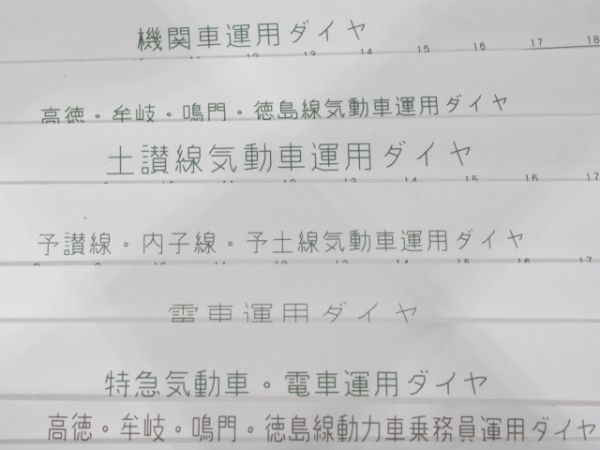 機関車運用ダイヤ
12 13 14 15 16 17 18
高徳・牟岐・鳴門・徳島線気動車運用ダイヤ
土讃線気動車運用ダイヤ
9 10 11 12 13 14 15 16 17
予讃線・内子線・予土線気動車運用ダイヤ
11 12 13 14 15 16 17
電車運用ダイヤ
特急気動車・電車運用ダイヤ
高徳・牟岐・鳴門・徳島線動力車乗務員運用ダイヤ